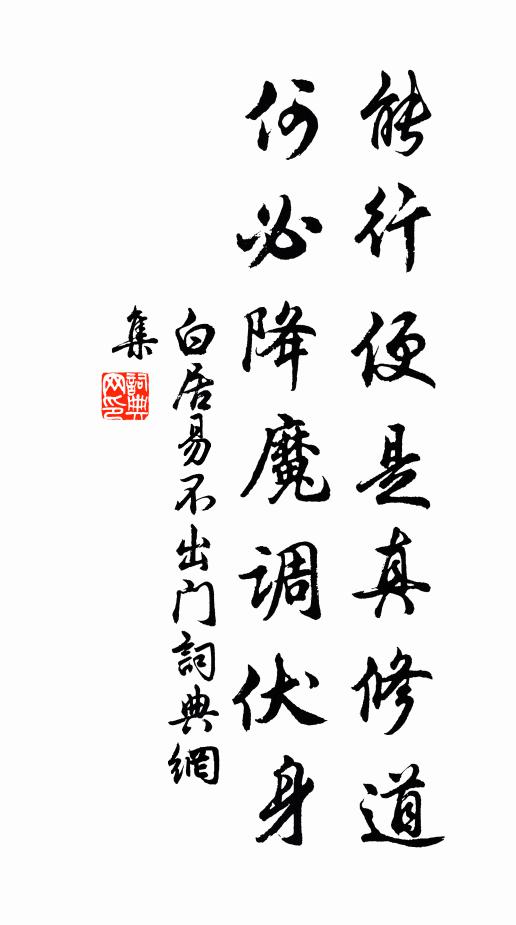 能行便是真修道
何必降魔调伏身
白居易不出门詞典網
集
詞典
网印